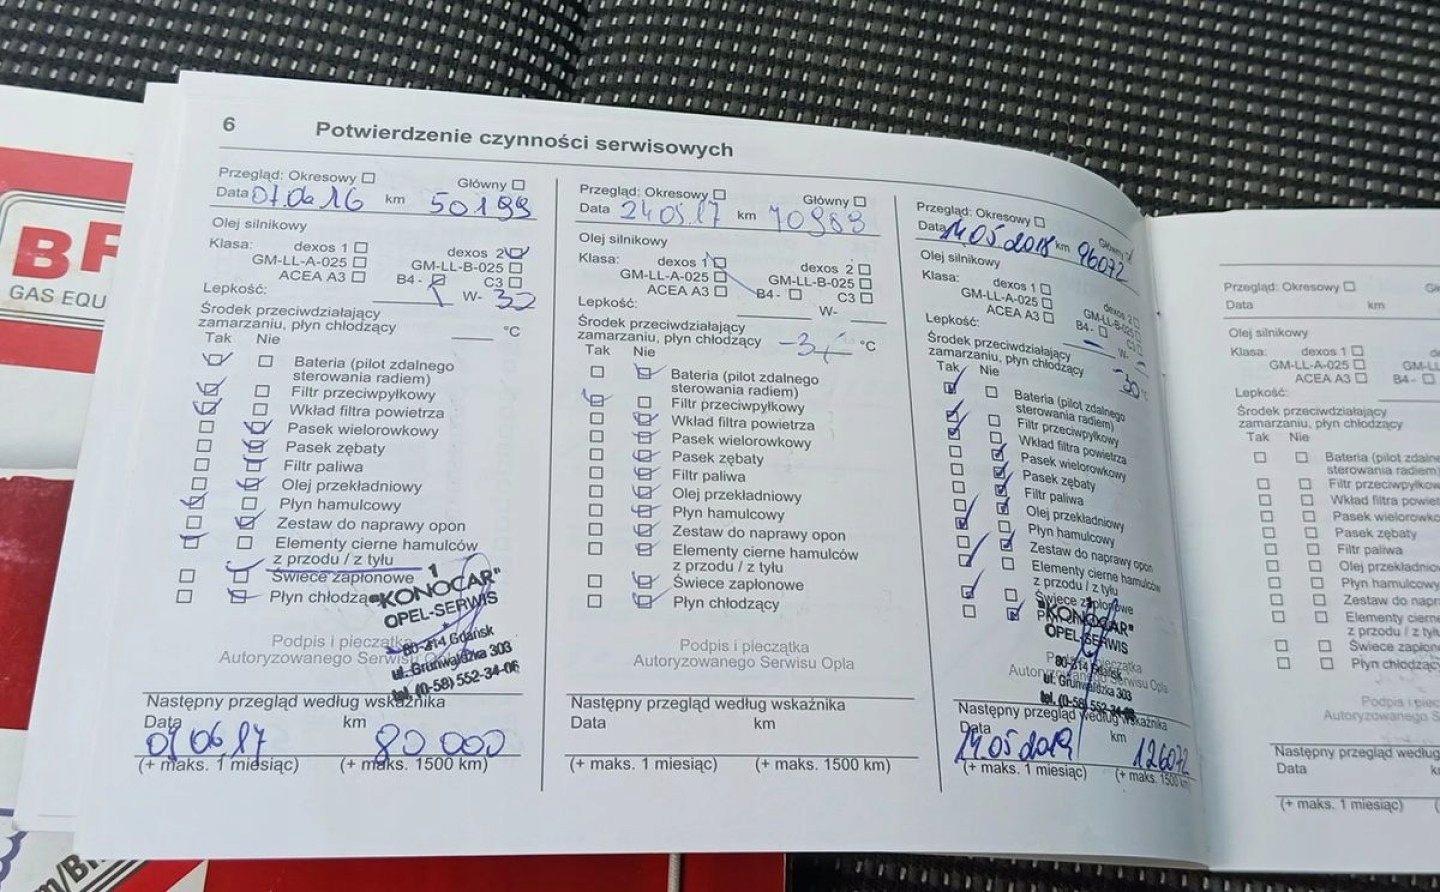 6 Potwierdzenie czynności serwisowych
Przegląd: Okresowy Główny
Data 07.06.16 km 50199
Olej silnikowy
Klasa: dexos 1 dexos 2
GM-LL-A-025 GM-LL-B-025
ACEA A3 B4 - C3
Lepkość: W- 30
Środek przeciwdziałający
zamarzaniu, płyn chłodzący °C
Tak Nie
Bateria (pilot zdalnego
sterowania radiem)
Filtr przeciwpyłkowy
Wkład filtra powietrza
Pasek wielorowkowy
Pasek zębaty
Filtr paliwa
Olej przekładniowy
Płyn hamulcowy
Zestaw do naprawy opon
Elementy cierne hamulców
z przodu / z tyłu
Świece zapłonowe
Płyn chłodzą
1
"KONOCAR"
OPEL-SERWIS
80-214 Gdańsk
ul. Grunwaldzka 303
tel. (0-58) 552-34-06
Podpis i pieczątka
Autoryzowanego Serwisu Opla
Następny przegląd według wskaźnika
Data km
07 06 17 80 000
(+ maks. 1 miesiąc) (+ maks. 1500 km)
Przegląd: Okresowy Główny
Data 24 05 17 km 70989
Olej silnikowy
Klasa: dexos 1 dexos 2
GM-LL-A-025
ACEA A3 B4 - C3
Lepkość: W-
Środek przeciwdziałający
zamarzaniu, płyn chłodzący °C
Tak Nie
Bateria (pilot zdalnego
sterowania radiem)
Filtr przeciwpyłkowy
Wkład filtra powietrza
Pasek wielorowkowy
Pasek zębaty
Filtr paliwa
Olej przekładniowy
Płyn hamulcowy
Zestaw do naprawy opon
Elementy cierne hamulców
z przodu / z tyłu
Świece zapłonowe
Płyn chłodzący
Podpis i pieczątka
Autoryzowanego Serwisu Opla
Następny przegląd według wskaźnika
Data km
(+ maks. 1 miesiąc) (+ maks. 1500 km)
Przegląd: Okresowy Główny
Data 14.05 2018 km 96072
Olej silnikowy
Klasa: dexos 1 dexos 2
GM-LL-A-025 GM-LL-B-025
ACEA A3 B4 - C3
Lepkość: W-
Środek przeciwdziałający
zamarzaniu, płyn chłodzący -30
Tak Nie
Bateria (pilot zdalnego
sterowania radiem)
Filtr przeciwpyłkowy
Wkład filtra powietrza
Pasek wielorowkowy
Pasek zębaty
Filtr paliwa
Olej przekładniowy
Płyn hamulcowy
Zestaw do naprawy opon
Elementy cierne hamulców
z przodu / z tyłu
Świece zapłonowe
"KONOCAR"
OPEL-SERWIS
80-214 Gdańsk
ul. Grunwaldzka 303
tel. (0-58) 552-34-06
pieczątka
Serwisu Opla
Następny przegląd według wskaźnika
Data km
14.05 2019 126072
(+ maks. 1 miesiąc) (+ maks. 1500 km)
Przegląd: Okresowy
Data km
Olej silnikowy
Klasa: dexos 1
GM-LL-A-025
ACEA A3 B4 -
Lepkość:
Środek przeciwdziałający
zamarzaniu, płyn chłodzący
Tak Nie
Bateria (pilot zdalne
sterowania radiem)
Filtr przeciwpyłkow
Wkład filtra powiet
Pasek wielorowko
Pasek zębaty
Filtr paliwa
Olej przekładniow
Płyn hamulcowy
Zestaw do napr
Elementy cierne
z przodu / z tyłu
Świece zapłon
Płyn chłodzący
Podpis i piec
Autoryzowanego S
Następny przegląd według
Data
(+ maks. 1 miesiąc)
GAS EQU